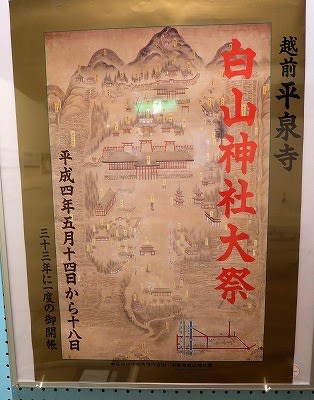 越前 平泉寺
白山神社大祭
平成四年五月十四日から十八日
三十三年に一度の御開帳